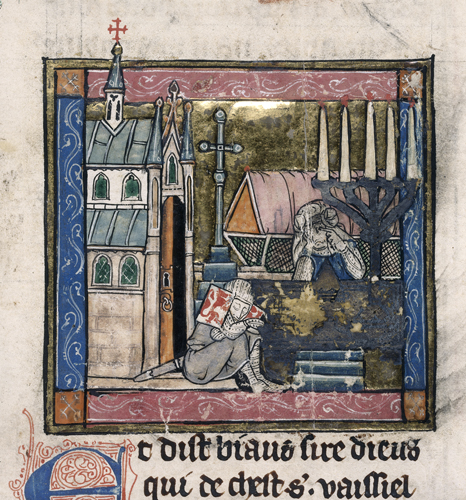 Et dist biaus sire dieus
qui de chest s'. vaissiel